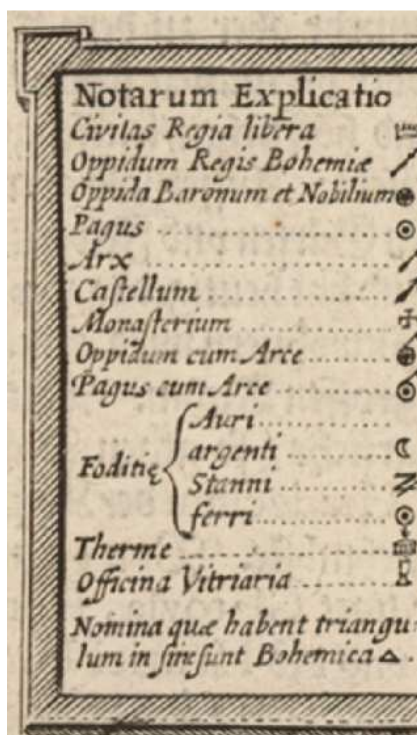 Notarum Explicatio
Civitas Regia libera
Oppidum Regis Bohemiæ
Oppida Baronum et Nobilium
Pagus
Arx
Castellum
Monasterium
Oppidum cum Arce
Pagus cum Arce
Foditię
Auri
argenti
Stanni
ferri
Therme
Officina Vitriaria
Nomina quæ habent triangu
lum in fine sunt Bohemica